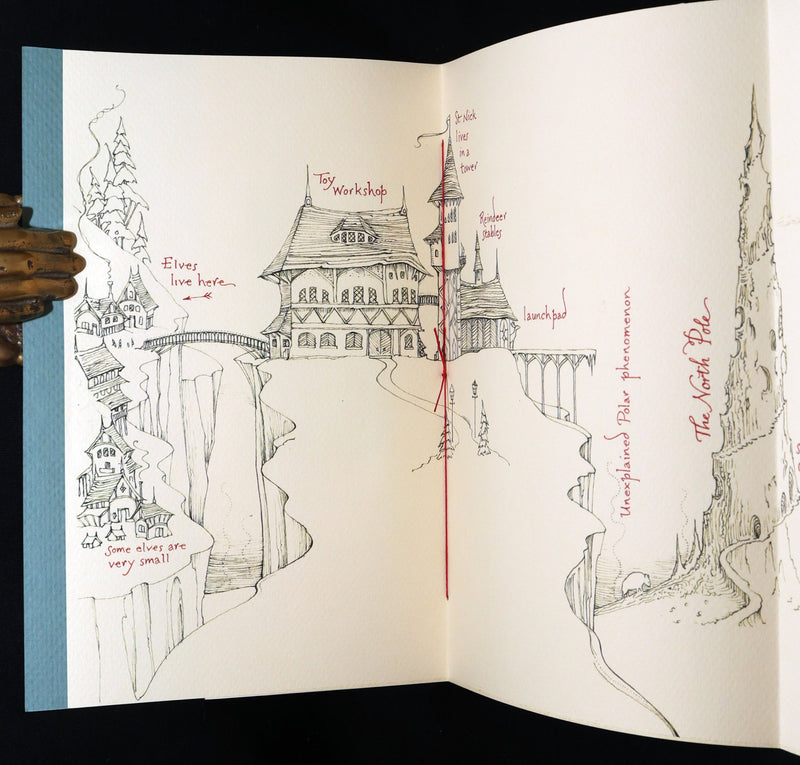 St Nick
lives
in a
tower
Toy
Workshop
Reindeer
stables
Elves
live here
launchpad
Unexplained Polar phenomenon
The North Pole
Some elves are
very small